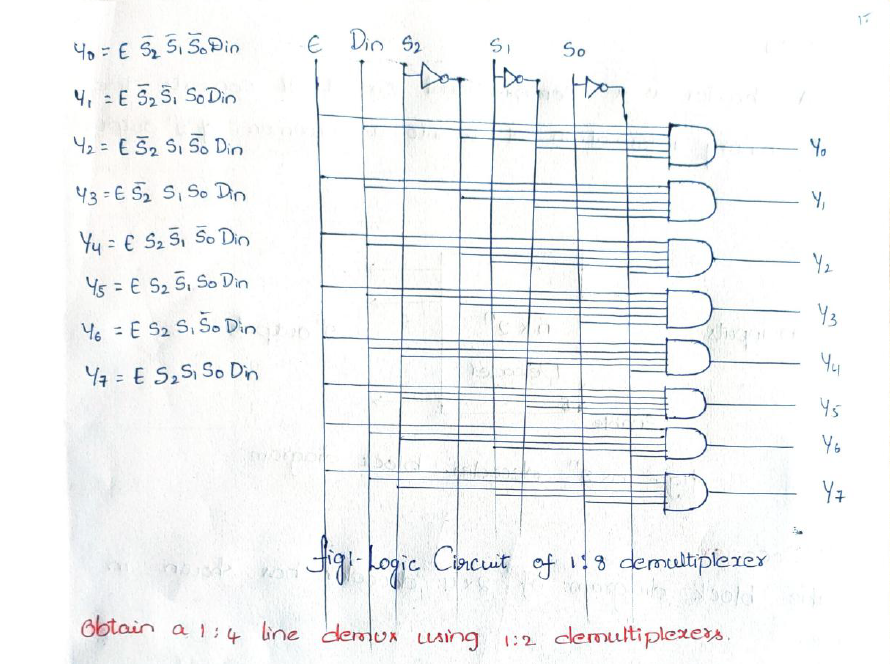 15
Y0 = E S̄2 S̄1 S̄0 Din
Y1 = E S̄2 S̄1 S0 Din
Y2 = E S̄2 S1 S̄0 Din
Y3 = E S̄2 S1 S0 Din
Y4 = E S2 S̄1 S̄0 Din
Y5 = E S2 S̄1 S0 Din
Y6 = E S2 S1 S̄0 Din
Y7 = E S2 S1 S0 Din
E Din S2 S1 S0
Y0
Y1
Y2
Y3
Y4
Y5
Y6
Y7
fig:- Logic Circuit of 1:8 demultiplexer
Obtain a 1:4 line demux using 1:2 demultiplexers.